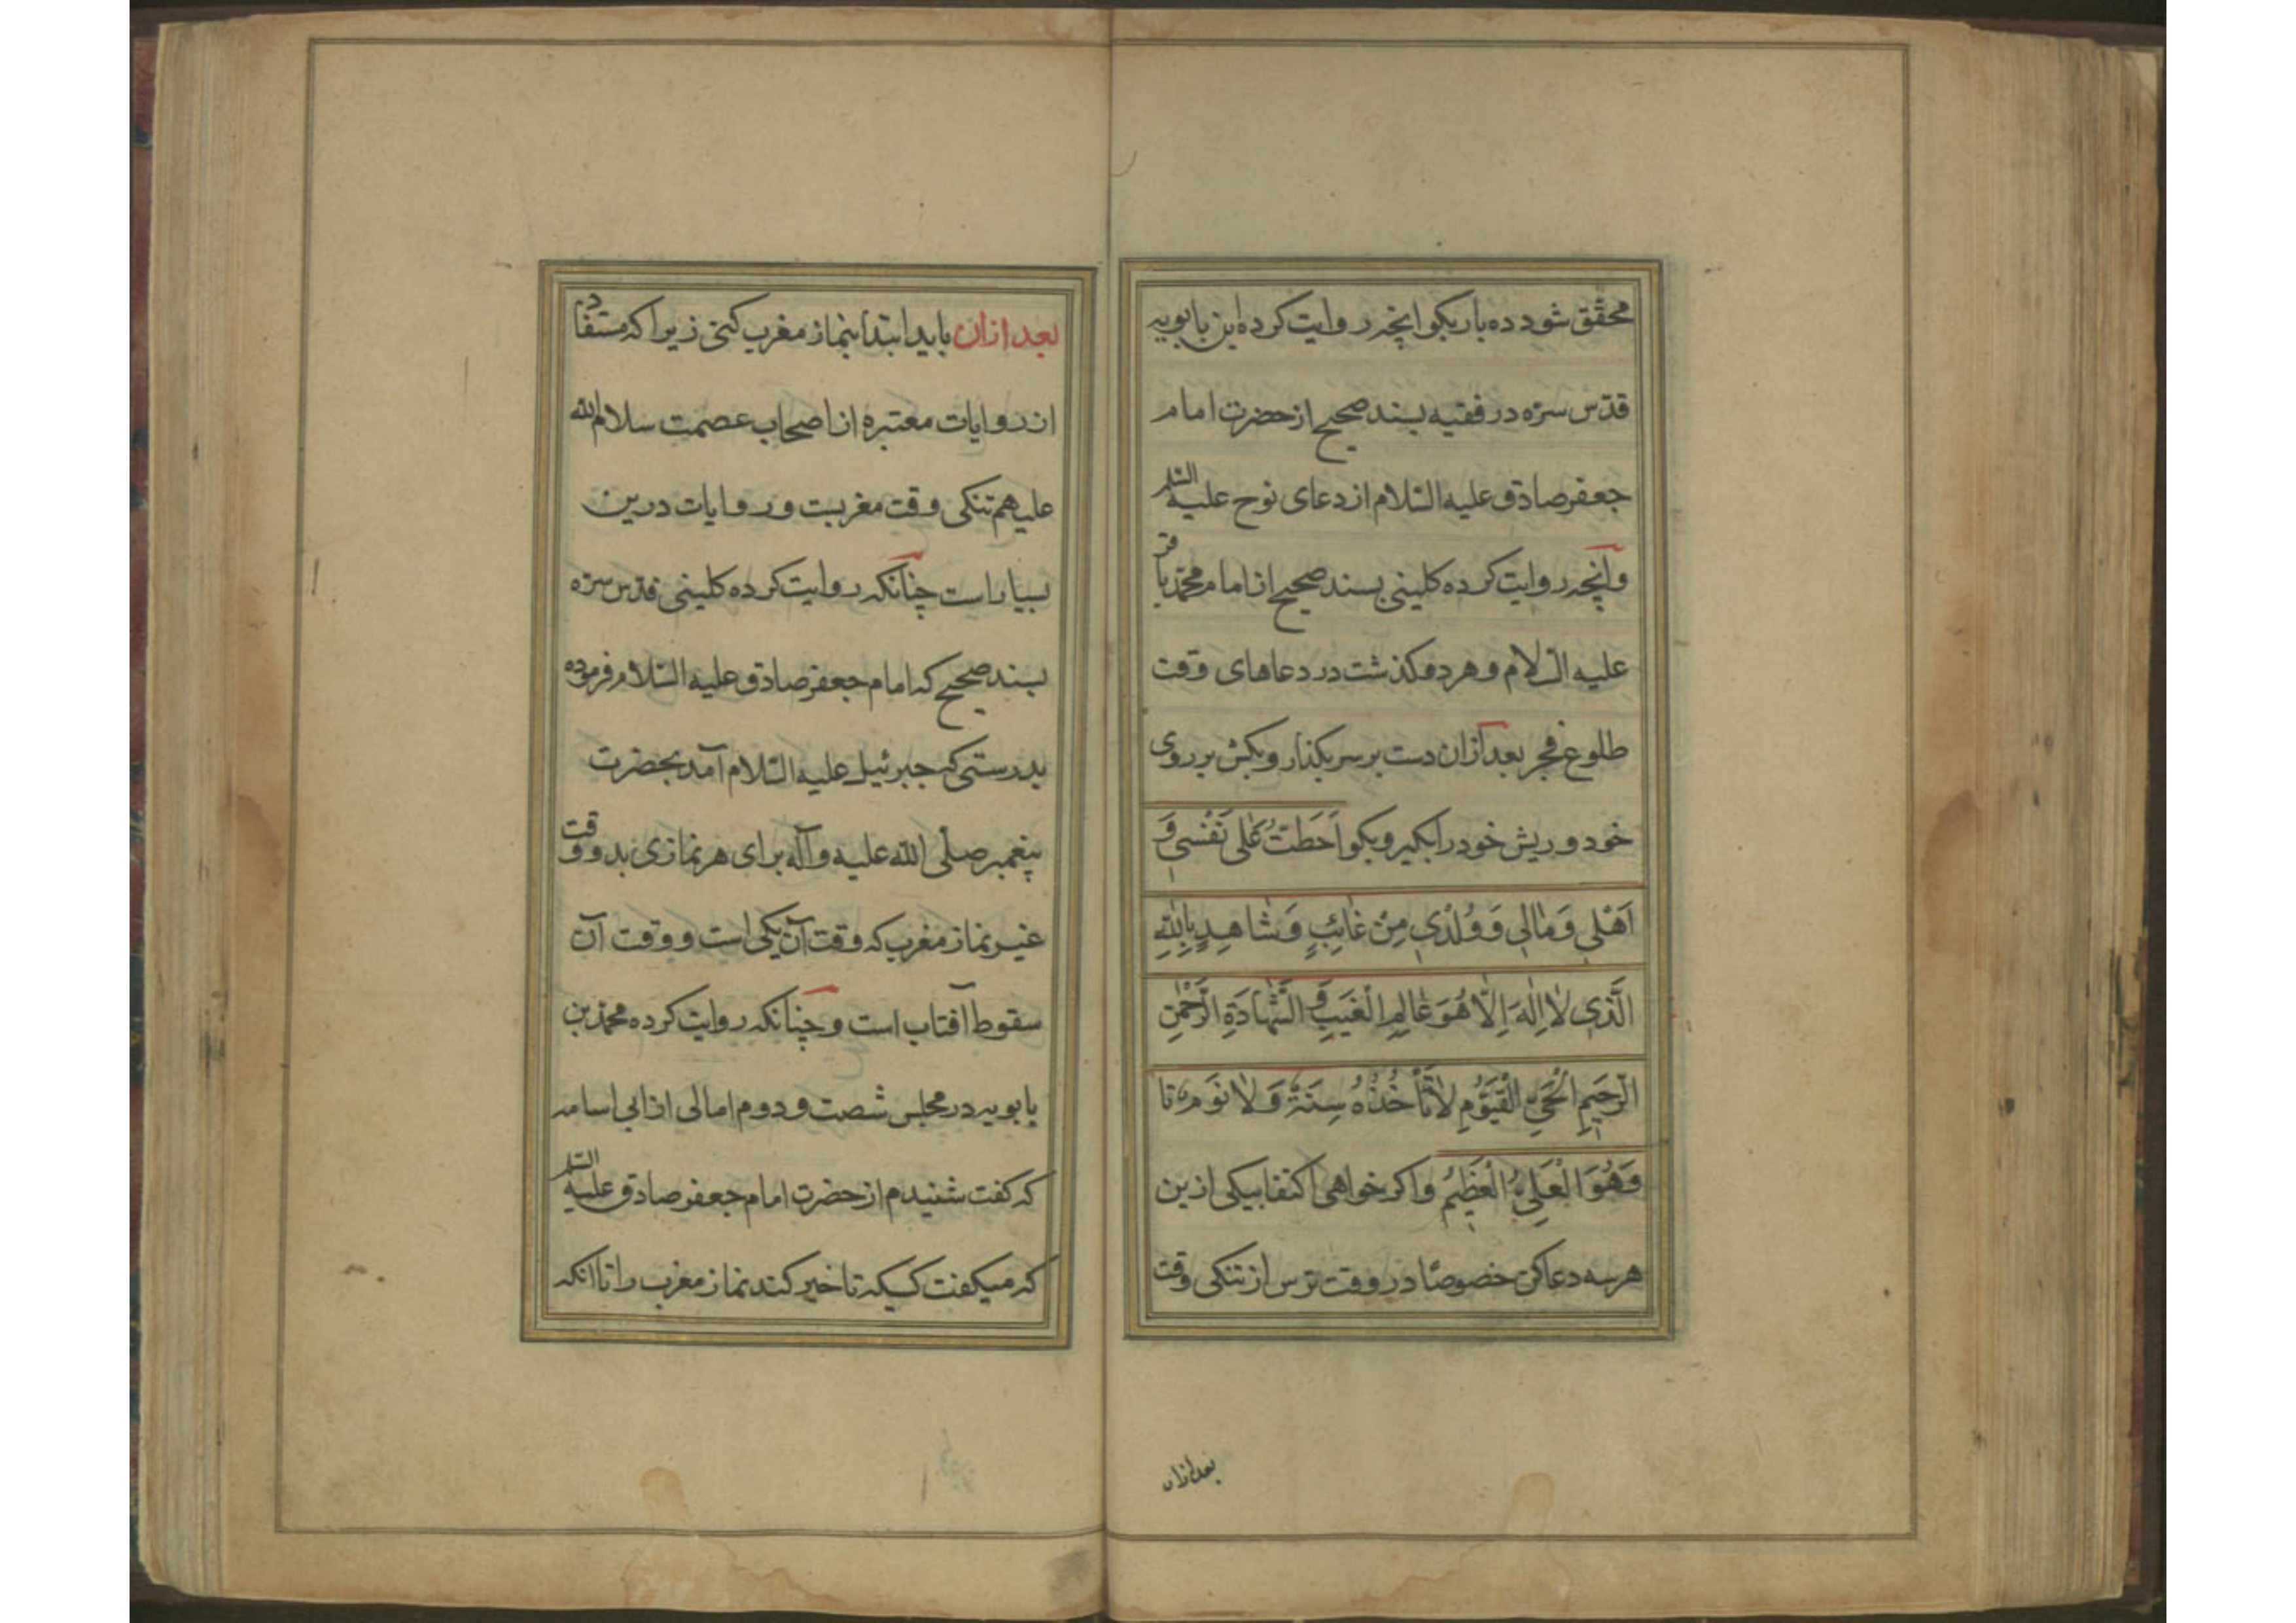 محقق شود ده بار بکو انچه روایت کرده ابن بابویه
قدّس سرّه در فقیه بسند صحیح از حضرت امام
جعفر صادق علیه السّلام از دعای نوح علیه السّلم
وآنچه روایت کرده کلینی بسند صحیح از امام محمّد باقر
علیه السّلام و هر دو کذشت در دعاهای وقت
طلوع فجر بعد ازان دست بر سر بکذار و بکش بر روی
خود و ریش خود را بکیر و بکو اَحَطْتُ عَلٰی نَفْسی وَ
اَهْلی وَمٰالی وَوُلْدی مِنْ غٰائِبٍ وَشٰاهِدٍ بِاللّٰهِ
الَّذی لٰا اِلٰهَ اِلّٰا هُوَ عٰالِمِ الْغَیْبِ وَ الشَّهٰادَةِ الرَّحْمٰنِ
الرَّحیمِ الْحَیِّ الْقَیُّومِ لٰا تَأْخُذُهُ سِنَةٌ وَلٰا نَوْمٌ تا
وَهُوَ الْعَلِیُّ الْعَظیمُ واکر خواهی اکتفا بیکی ازین
هر سه دعا کن خصوصًا در وقت ترس از تنکی وقت
بعد ازان
بعد ازان باید ابتدا بنماز مغرب کنی زیرا که مستفاد
از روایات معتبره از اصحاب عصمت سلام الله
علیهم تنکی وقت مغربست و روایات درین
بسیار است چنانکه روایت کرده کلینی قدّس سرّه
بسند صحیح که امام جعفر صادق علیه السّلام فرموده
بدرستی که جبرئیل علیه السّلام آمد بحضرت
پیغمبر صلّی الله علیه وآله برای هر نمازی بدو وقت
غیر نماز مغرب که وقت آن یکی است و وقت آن
سقوط آفتاب است و چنانکه روایت کرده محمّد بن
بابویه در مجلس شصت و دوم امالی از ابی اسامه
که کفت شنیدم از حضرت امام جعفر صادق علیه السّلم
که میکفت کسیکه تاخیر کند نماز مغرب را تا آنکه